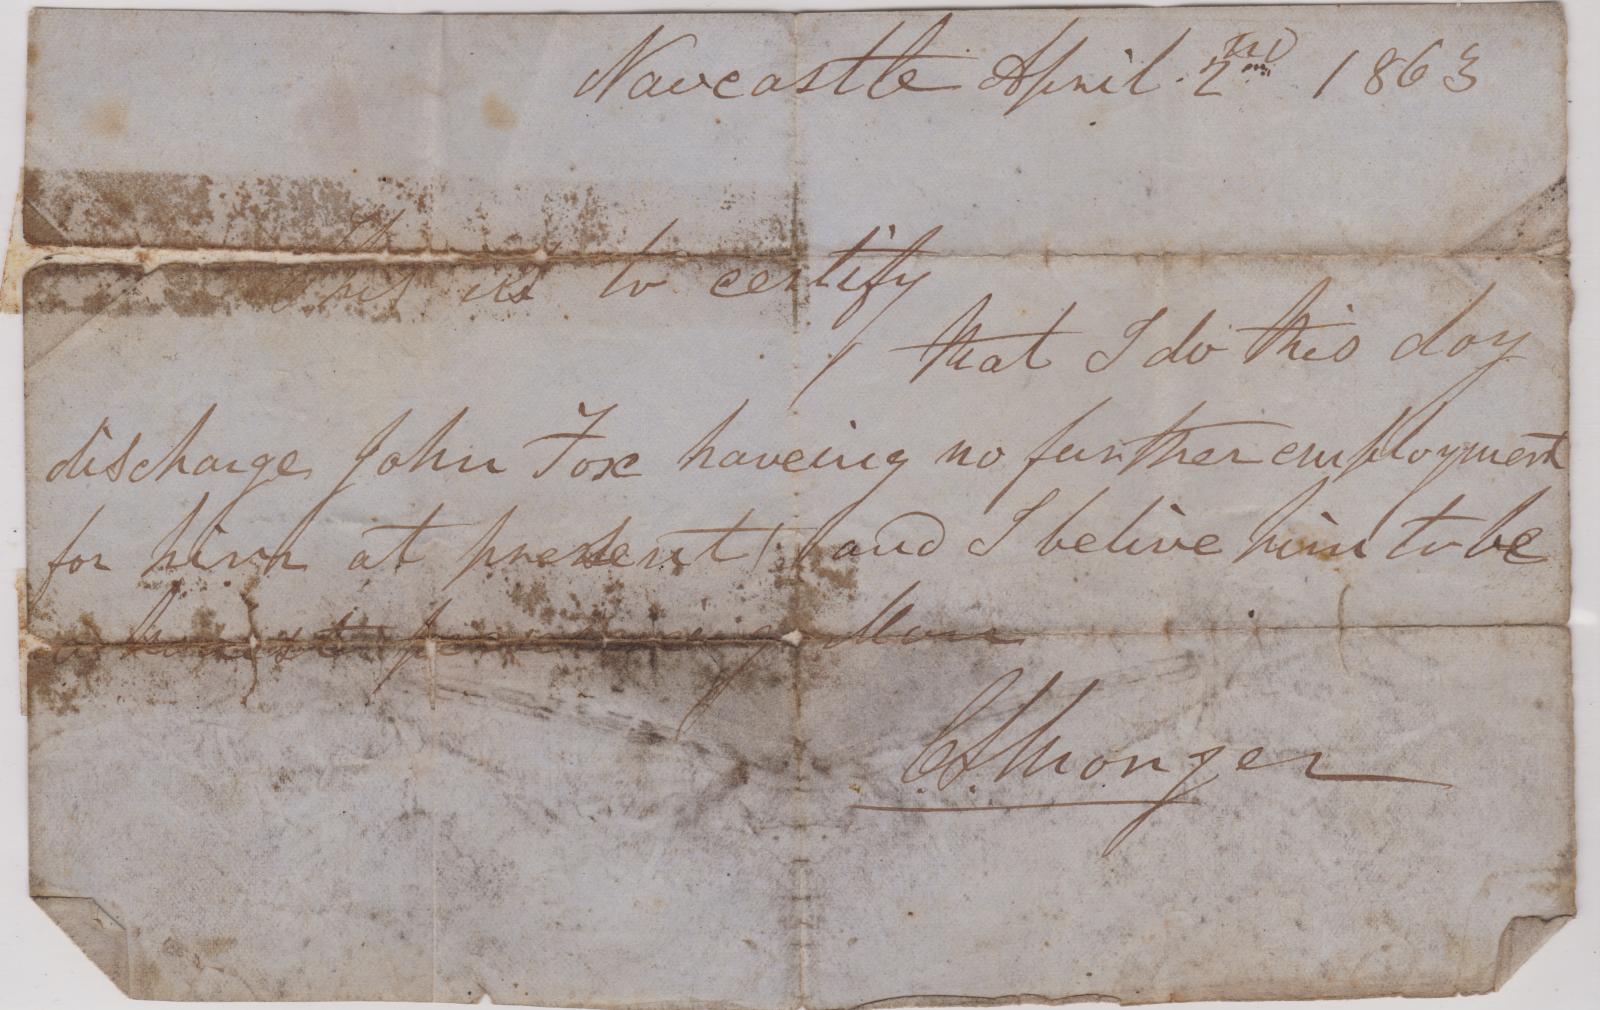 Navcastle April 2nd 1863
This is to certify
that I do this day
discharge John Fox haveing no further employment
for him at present and I belive him to be
a honest Man
C A Monger